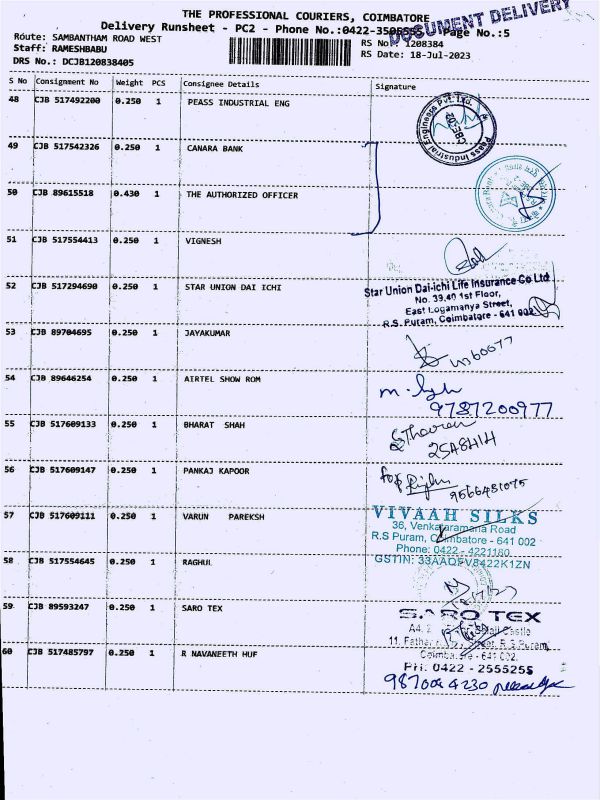 THE PROFESSIONAL COURIERS, COIMBATORE
DOCUMENT DELIVERY
Delivery Runsheet - PC2 - Phone No.:0422- Page No.:5
Route: SAMBANTHAM ROAD WEST
RS No.: 1208384
Staff: RAMESHBABU
RS Date: 18-Jul-2023
DRS No.: DCJB120838405
S No Consignment No Weight PCS Consignee Details Signature
48 CJB 517492200 0.250 1 PEASS INDUSTRIAL ENG
Peass Industrial Engineers Pvt. Ltd.
49 CJB 517542326 0.250 1 CANARA BANK
50 CJB 89615518 0.430 1 THE AUTHORIZED OFFICER
51 CJB 517554413 0.250 1 VIGNESH
52 CJB 517294690 0.250 1 STAR UNION DAI ICHI
Star Union Dai-ichi Life Insurance Co Ltd
No. 39,40 1st Floor,
East Logamanya Street,
R.S. Puram, Coimbatore - 641 002
53 CJB 89704695 0.250 1 JAYAKUMAR
54 CJB 89646254 0.250 1 AIRTEL SHOW ROM
9787200977
55 CJB 517609133 0.250 1 BHARAT SHAH
56 CJB 517609147 0.250 1 PANKAJ KAPOOR
57 CJB 517609111 0.250 1 VARUN PAREKSH
VIVAAH SILKS
36, Venkataramana Road
R.S Puram, Coimbatore - 641 002
Phone: 0422 - 4221180
GSTIN: 33AAQFV8422K1ZN
58 CJB 517554645 0.250 1 RAGHUL
59 CJB 89593247 0.250 1 SARO TEX
SARO TEX
Coimbatore - 641 002.
PH: 0422 - 2555255
60 CJB 517485797 0.250 1 R NAVANEETH HUF